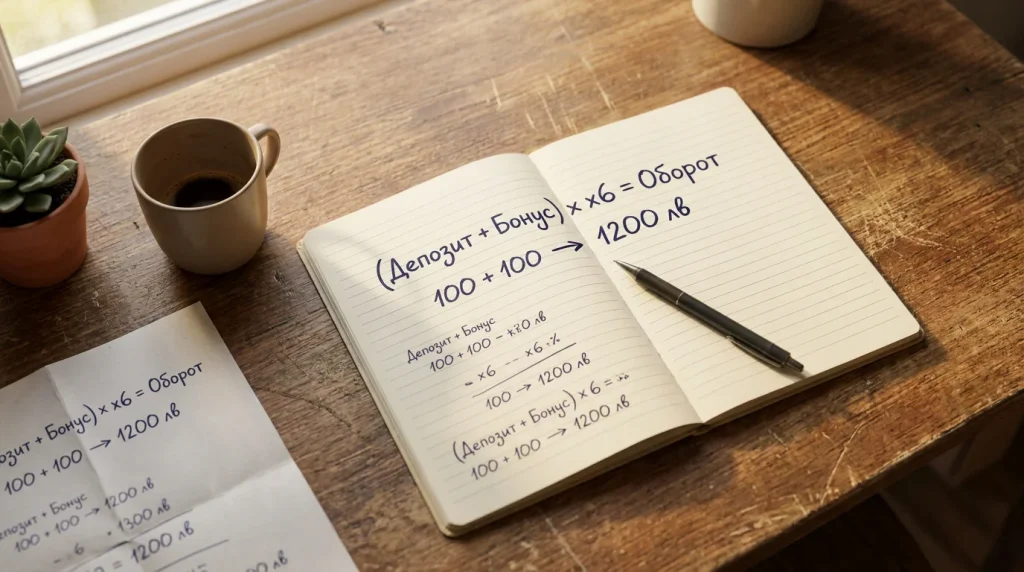 (Депозит + Бонус) × x6 = Оборот
100 + 100 → 1200 лв
Депозит + Бонус
100 + 100 –
- x6 --- x6 %
100 → 1200 лв
(Депозит + Бонус) × 6 =
100 + 100 → 1200 лв
озит + Бонус) × x6 = Оборот
100 + 100 → 1200 лв
епозит + Бонус
100 + 100 → 1200 лв
-- 6 • 1300 лв
= 1200 лв
00 лв